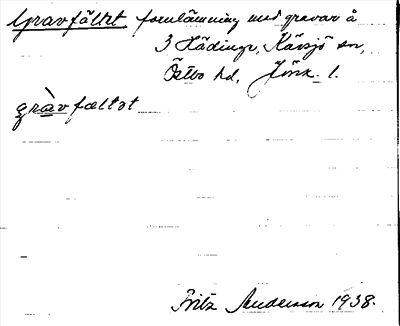 Gravfältet fornlämning med gravar å
3 Hädinge, Kävsjö sn,
Östbo hd, Jönk. l.
gràvfæltət
Fritz Andersson 1938.